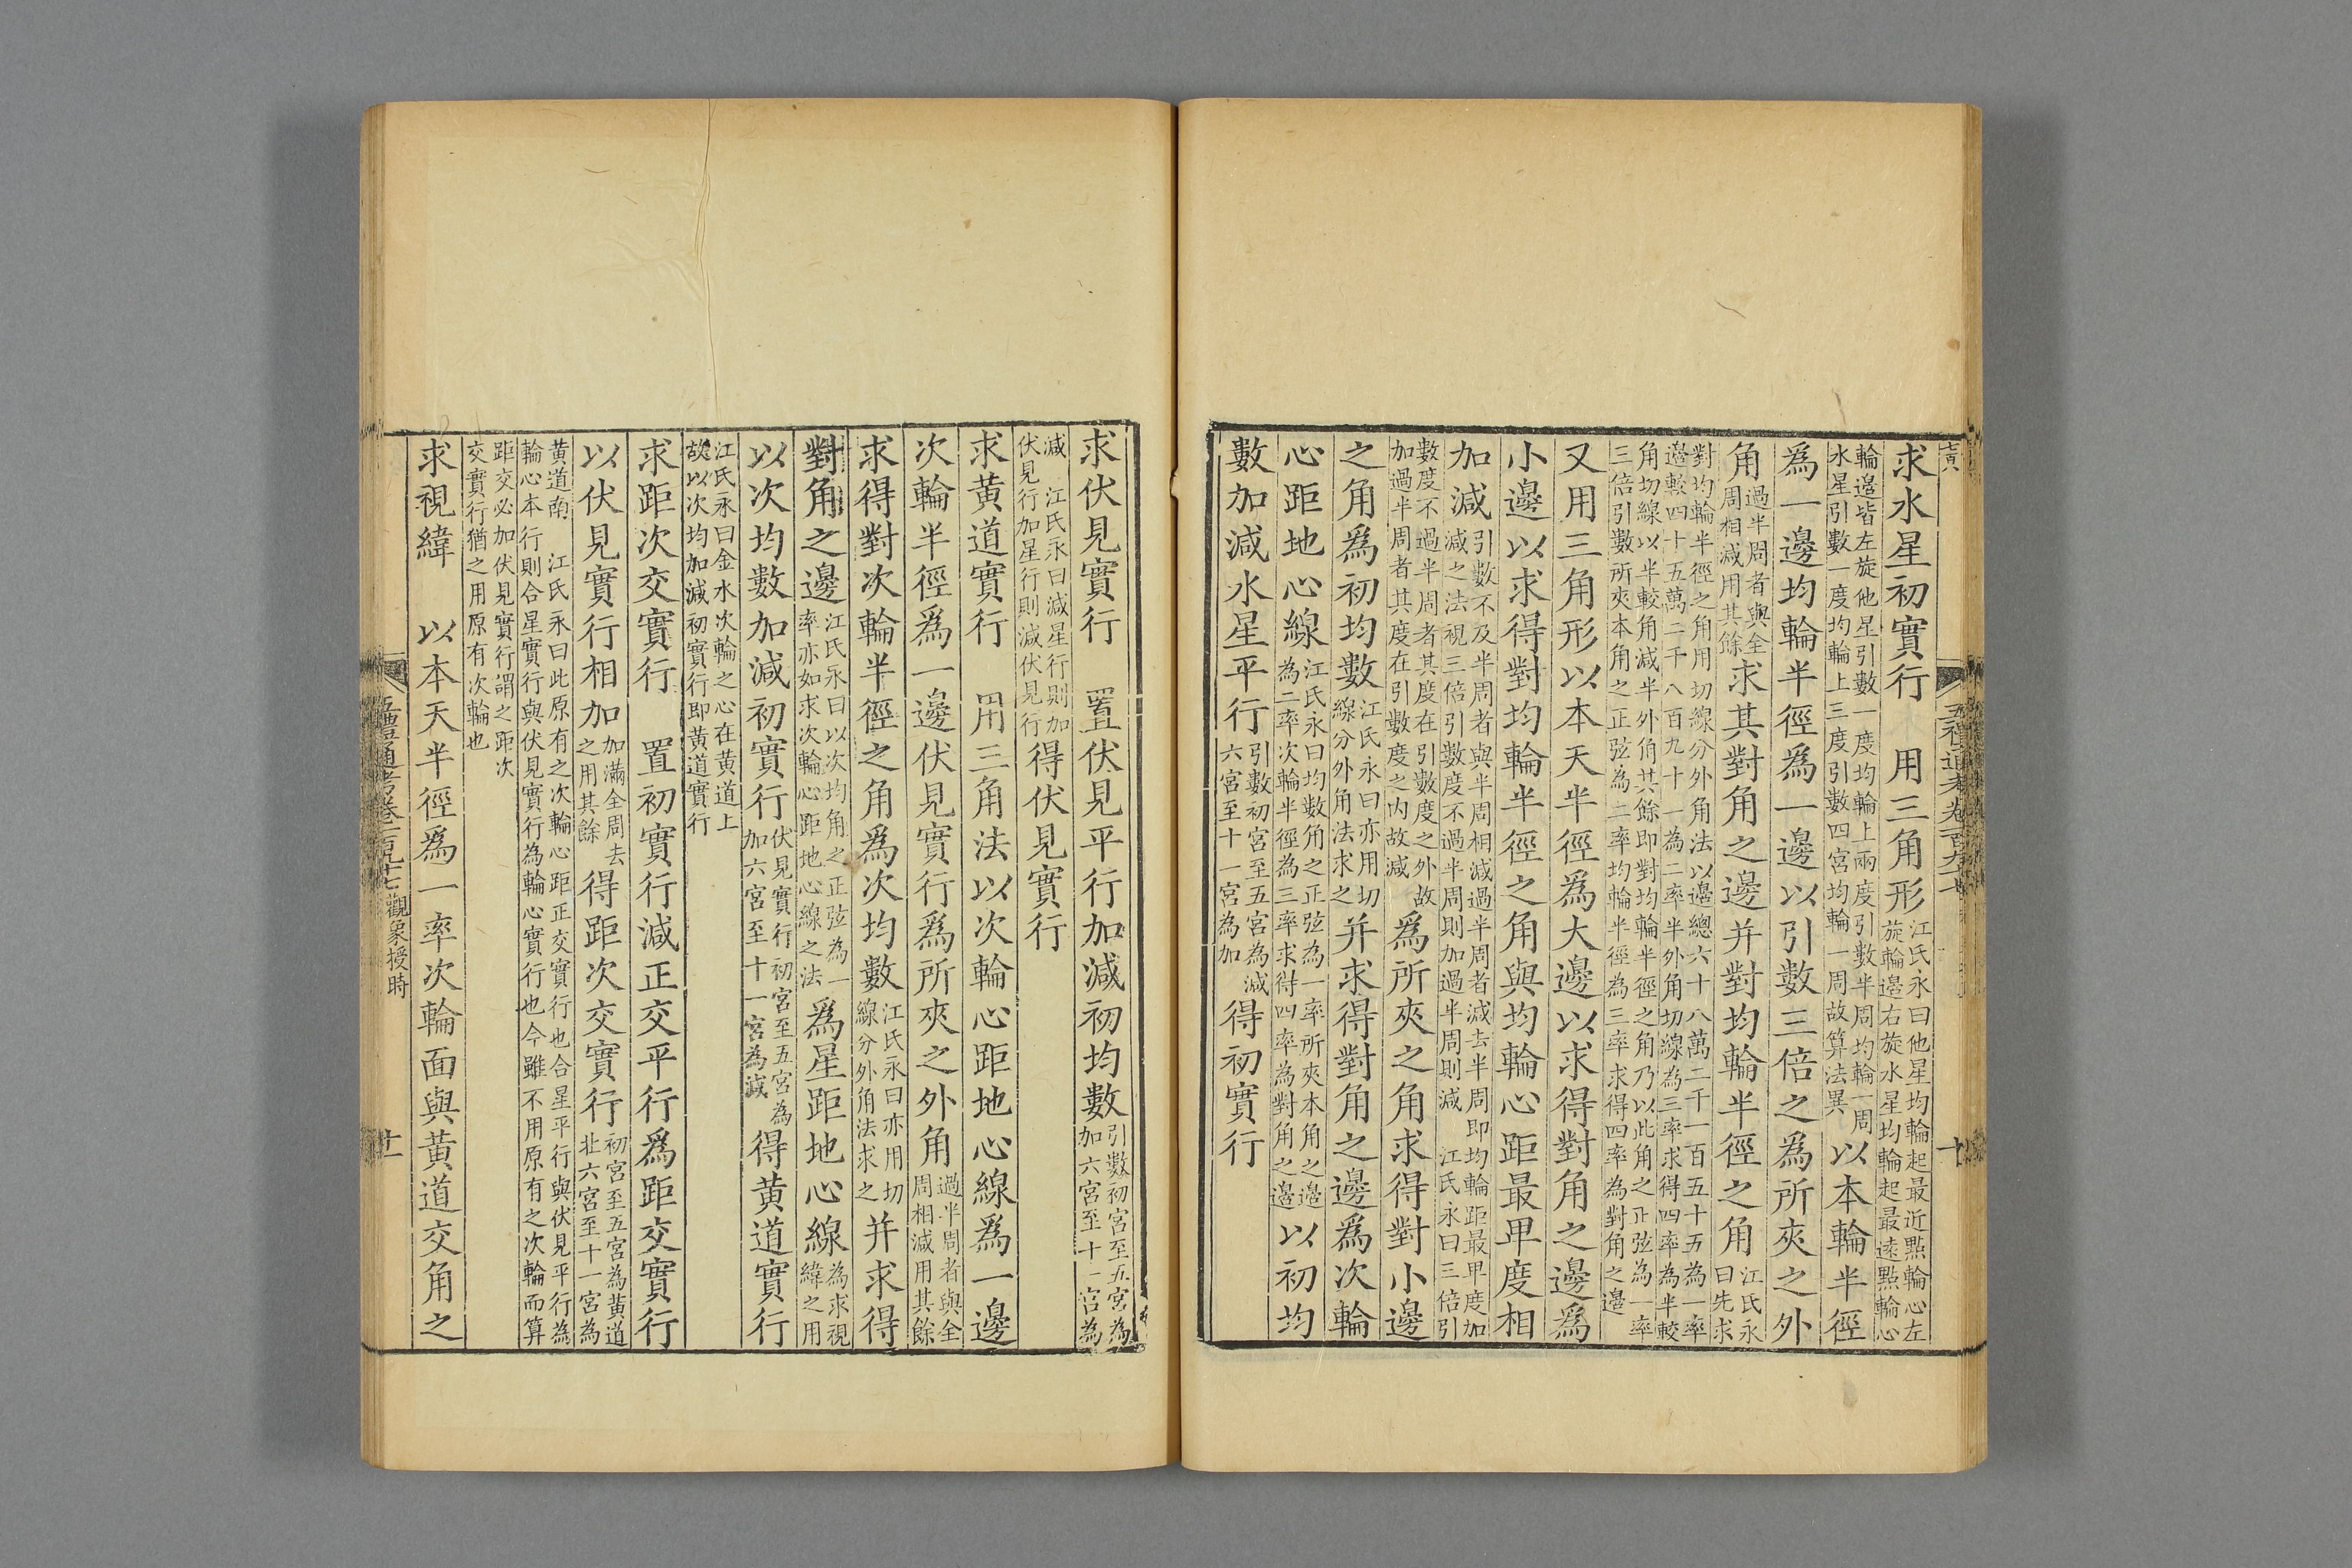 求水星初實行　用三角形江氏永曰他星均輪起最近點輪心左旋輪邊右旋水星均輪起最遠點輪心
輪邊皆左旋他星引數一度均輪上兩度引數半周均輪一周水星引數一度均輪上三度引數四宮均輪一周故算法異以本輪半徑
爲一邊均輪半徑爲一邊以引數三倍之爲所夾之外
角過半周者與全周相減用其餘求其對角之邊并對均輪半徑之角江氏永曰先求
對均輪半徑之角用切線分外角法以邊總六十八萬二千一百五十五為一率邊較四十五萬二千八百九十一為二率半外角切線為三率求得四率為半較
角切線以半較角減半外角其餘即對均輪半徑之角乃以此角之正弦為一率三倍引數所夾本角之正弦為二率均輪半徑為三率求得四率為對角之邊
又用三角形以本天半徑爲大邊以求得對角之邊爲
小邊以求得對均輪半徑之角與均輪心距最卑度相
加減引數不及半周者與半周相減過半周者減去半周即均輪距最卑度加減之法視三倍引數度不過半周則加過半周則減　江氏永曰三倍引
數度不過半周者其度在引數度之外故加過半周者其度在引數度之內故減爲所夾之角求得對小邊
之角爲初均數江氏永曰亦用切線分外角法求之并求得對角之邊爲次輪
心距地心線江氏永曰均數角之正弦為一率所夾本角之邊為二率次輪半徑為三率求得四率為對角之邊以初均
數加減水星平行引數初宮至五宮為減六宮至十一宮為加得初實行
求伏見實行　置伏見平行加減初均數引數初宮至五宮為加六宮至十一宮為
減　江氏永曰減星行則加伏見行加星行則減伏見行得伏見實行
求黃道實行　用三角法以次輪心距地心線爲一邊
次輪半徑爲一邊伏見實行爲所夾之外角過半周者與全周相減用其餘
求得對次輪半徑之角爲次均數江氏永曰亦用切線分外角法求之并求得
對角之邊江氏永曰以次均角之正弦為一率亦如求次輪心距地心線之法爲星距地心線為求視緯之用
以次均數加減初實行伏見實行初宮至五宮為加六宮至十一宮為減得黃道實行
江氏永曰金水次輪之心在黃道上故以次均加減初實行即黃道實行
求距次交實行　置初實行減正交平行爲距交實行
以伏見實行相加加滿全周去之用其餘得距次交實行初宮至五宮為黃道北六宮至十一宮為
黃道南　江氏永曰此原有之次輪心距正交實行也合星平行與伏見平行為輪心本行則合星實行與伏見實行為輪心實行也今雖不用原有之次輪而算
距交必加伏見實行謂之距次交實行猶之用原有次輪也
求視緯　以本天半徑爲一率次輪面與黃道交角之
觀象授時